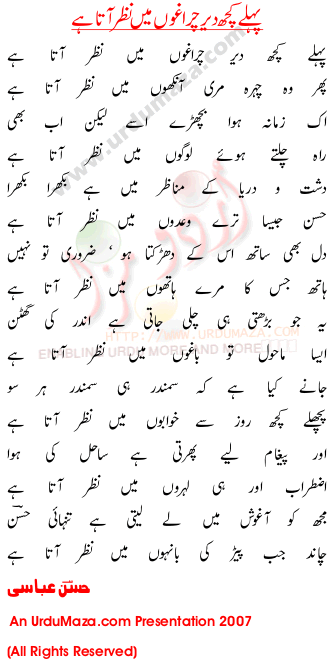 پہلے کچھ دیر چراغوں میں نظر آتا ہے
پہلے کچھ دیر چراغوں میں نظر آتا ہے
پھر وہ چہرہ مری آنکھوں میں نظر آتا ہے
اک زمانہ ہوا بچھڑے اسے لیکن اب بھی
راہ چلتے ہوئے لوگوں میں نظر آتا ہے
دشت و دریا کے مناظر میں ہے بکھرا بکھرا
حسن جیسا ترے وعدوں میں نظر آتا ہے
دل بھی ساتھ اس کے دھڑکتا ہو ، ضروری تو نہیں
ہاتھ جس کا مرے ہاتھوں میں نظر آتا ہے
یہ جو بڑھتی ہی چلی جاتی ہے اندر کی گھٹن
HTTP://WWW.URDUMAZA.COM
ENABLING URDU MORE AND MORE
ایسا ماحول تو باغوں میں نظر آتا ہے
جانے کیا ہے کہ سمندر ہی سمندر ہر سو
پچھلے کچھ روز سے خوابوں میں نظر آتا ہے
اور پیغام لیے پھرتی ہے ساحل کی ہوا
اضطراب اور ہی لہروں میں نظر آتا ہے
مجھ کو آغوش میں لے لیتی ہے تنہائی حسنؔ
چاند جب پیڑ کی بانہوں میں نظر آتا ہے
حسنؔ عباسی
An UrduMaza.com Presentation 2007
(All Rights Reserved)
www.urdumaza.com
اردو مزا